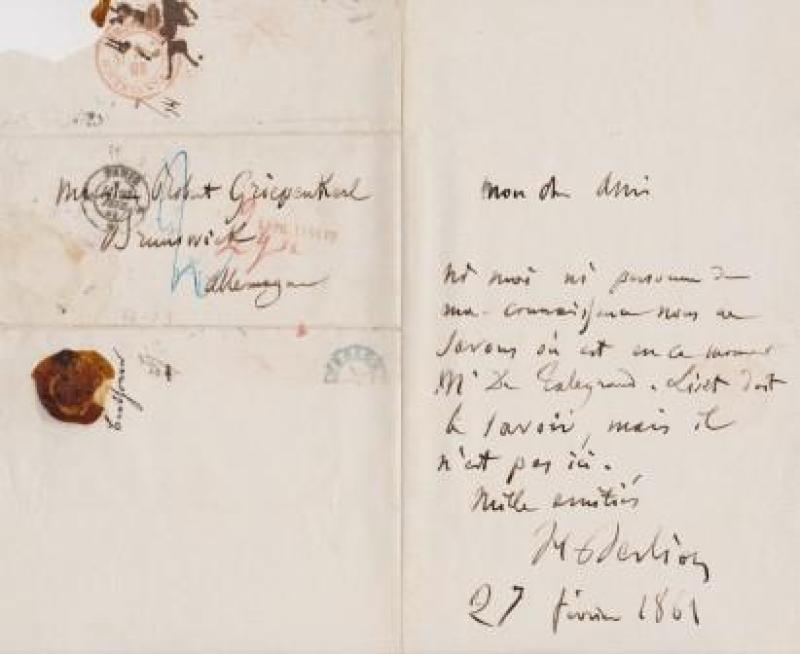 PARIS
Robert Griepenkerl
Brunswick
Allemagne
mon cher Ami
ni moi ni personne de
ma connaissance nous ne
savons où est en ce moment
Mr De Talegrand. Liszt doit
le savoir, mais il
n'est pas ici.
Mille amitiés
H Berlioz
27 février 1861